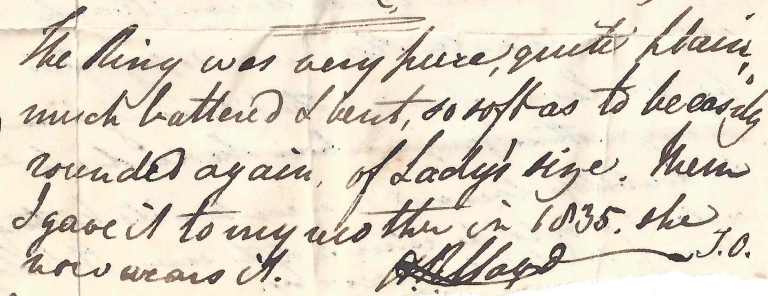 The Ring was very pure, quite plain,
much battered & bent, so soft as to be easily
rounded again, of Lady's size. Them
I gave it to my mother in 1835. she
now wears it. J.O.